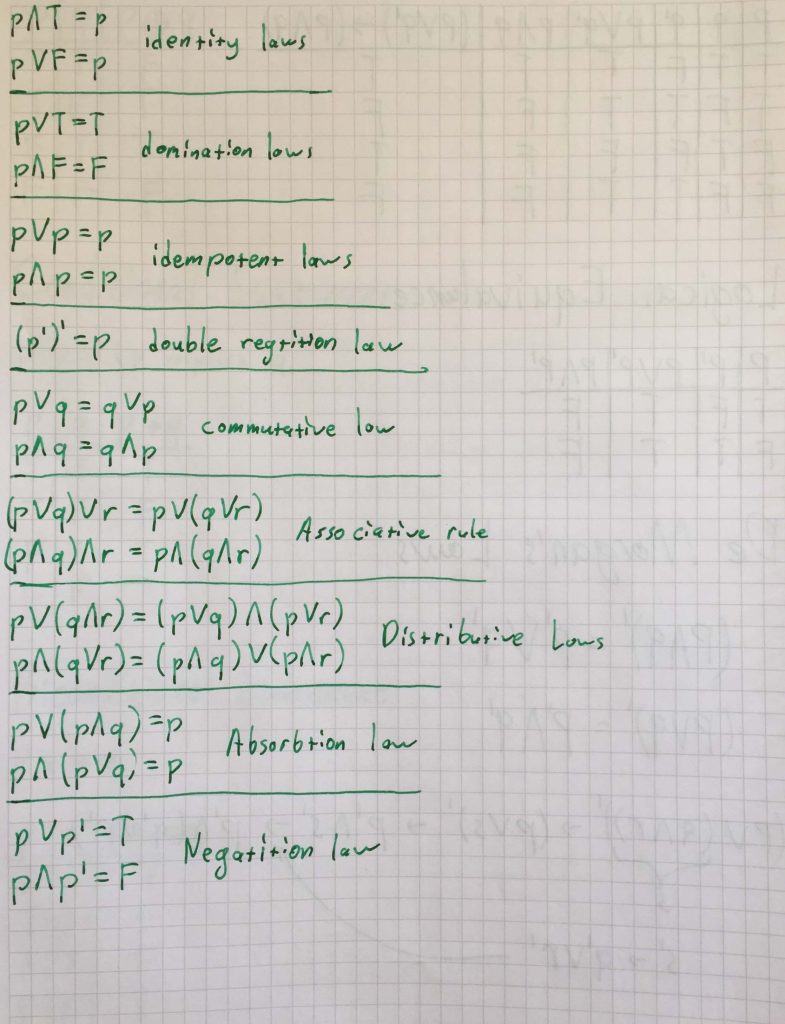 p∧T = p
identity laws
p∨F = p
p∨T = T
domination lows
p∧F = F
p∨p = p
idempotent laws
p∧p = p
(p')' = p double regrition law
p∨q = q∨p
commutative low
p∧q = q∧p
(p∨q)∨r = p∨(q∨r)
Associative rule
(p∧q)∧r = p∧(q∧r)
p∨(q∧r) = (p∨q)∧(p∨r)
Distributive Lows
p∧(q∨r) = (p∧q)∨(p∧r)
p∨(p∧q) = p
Absorbtion law
p∧(p∨q) = p
p∨p' = T
Negatition law
p∧p' = F